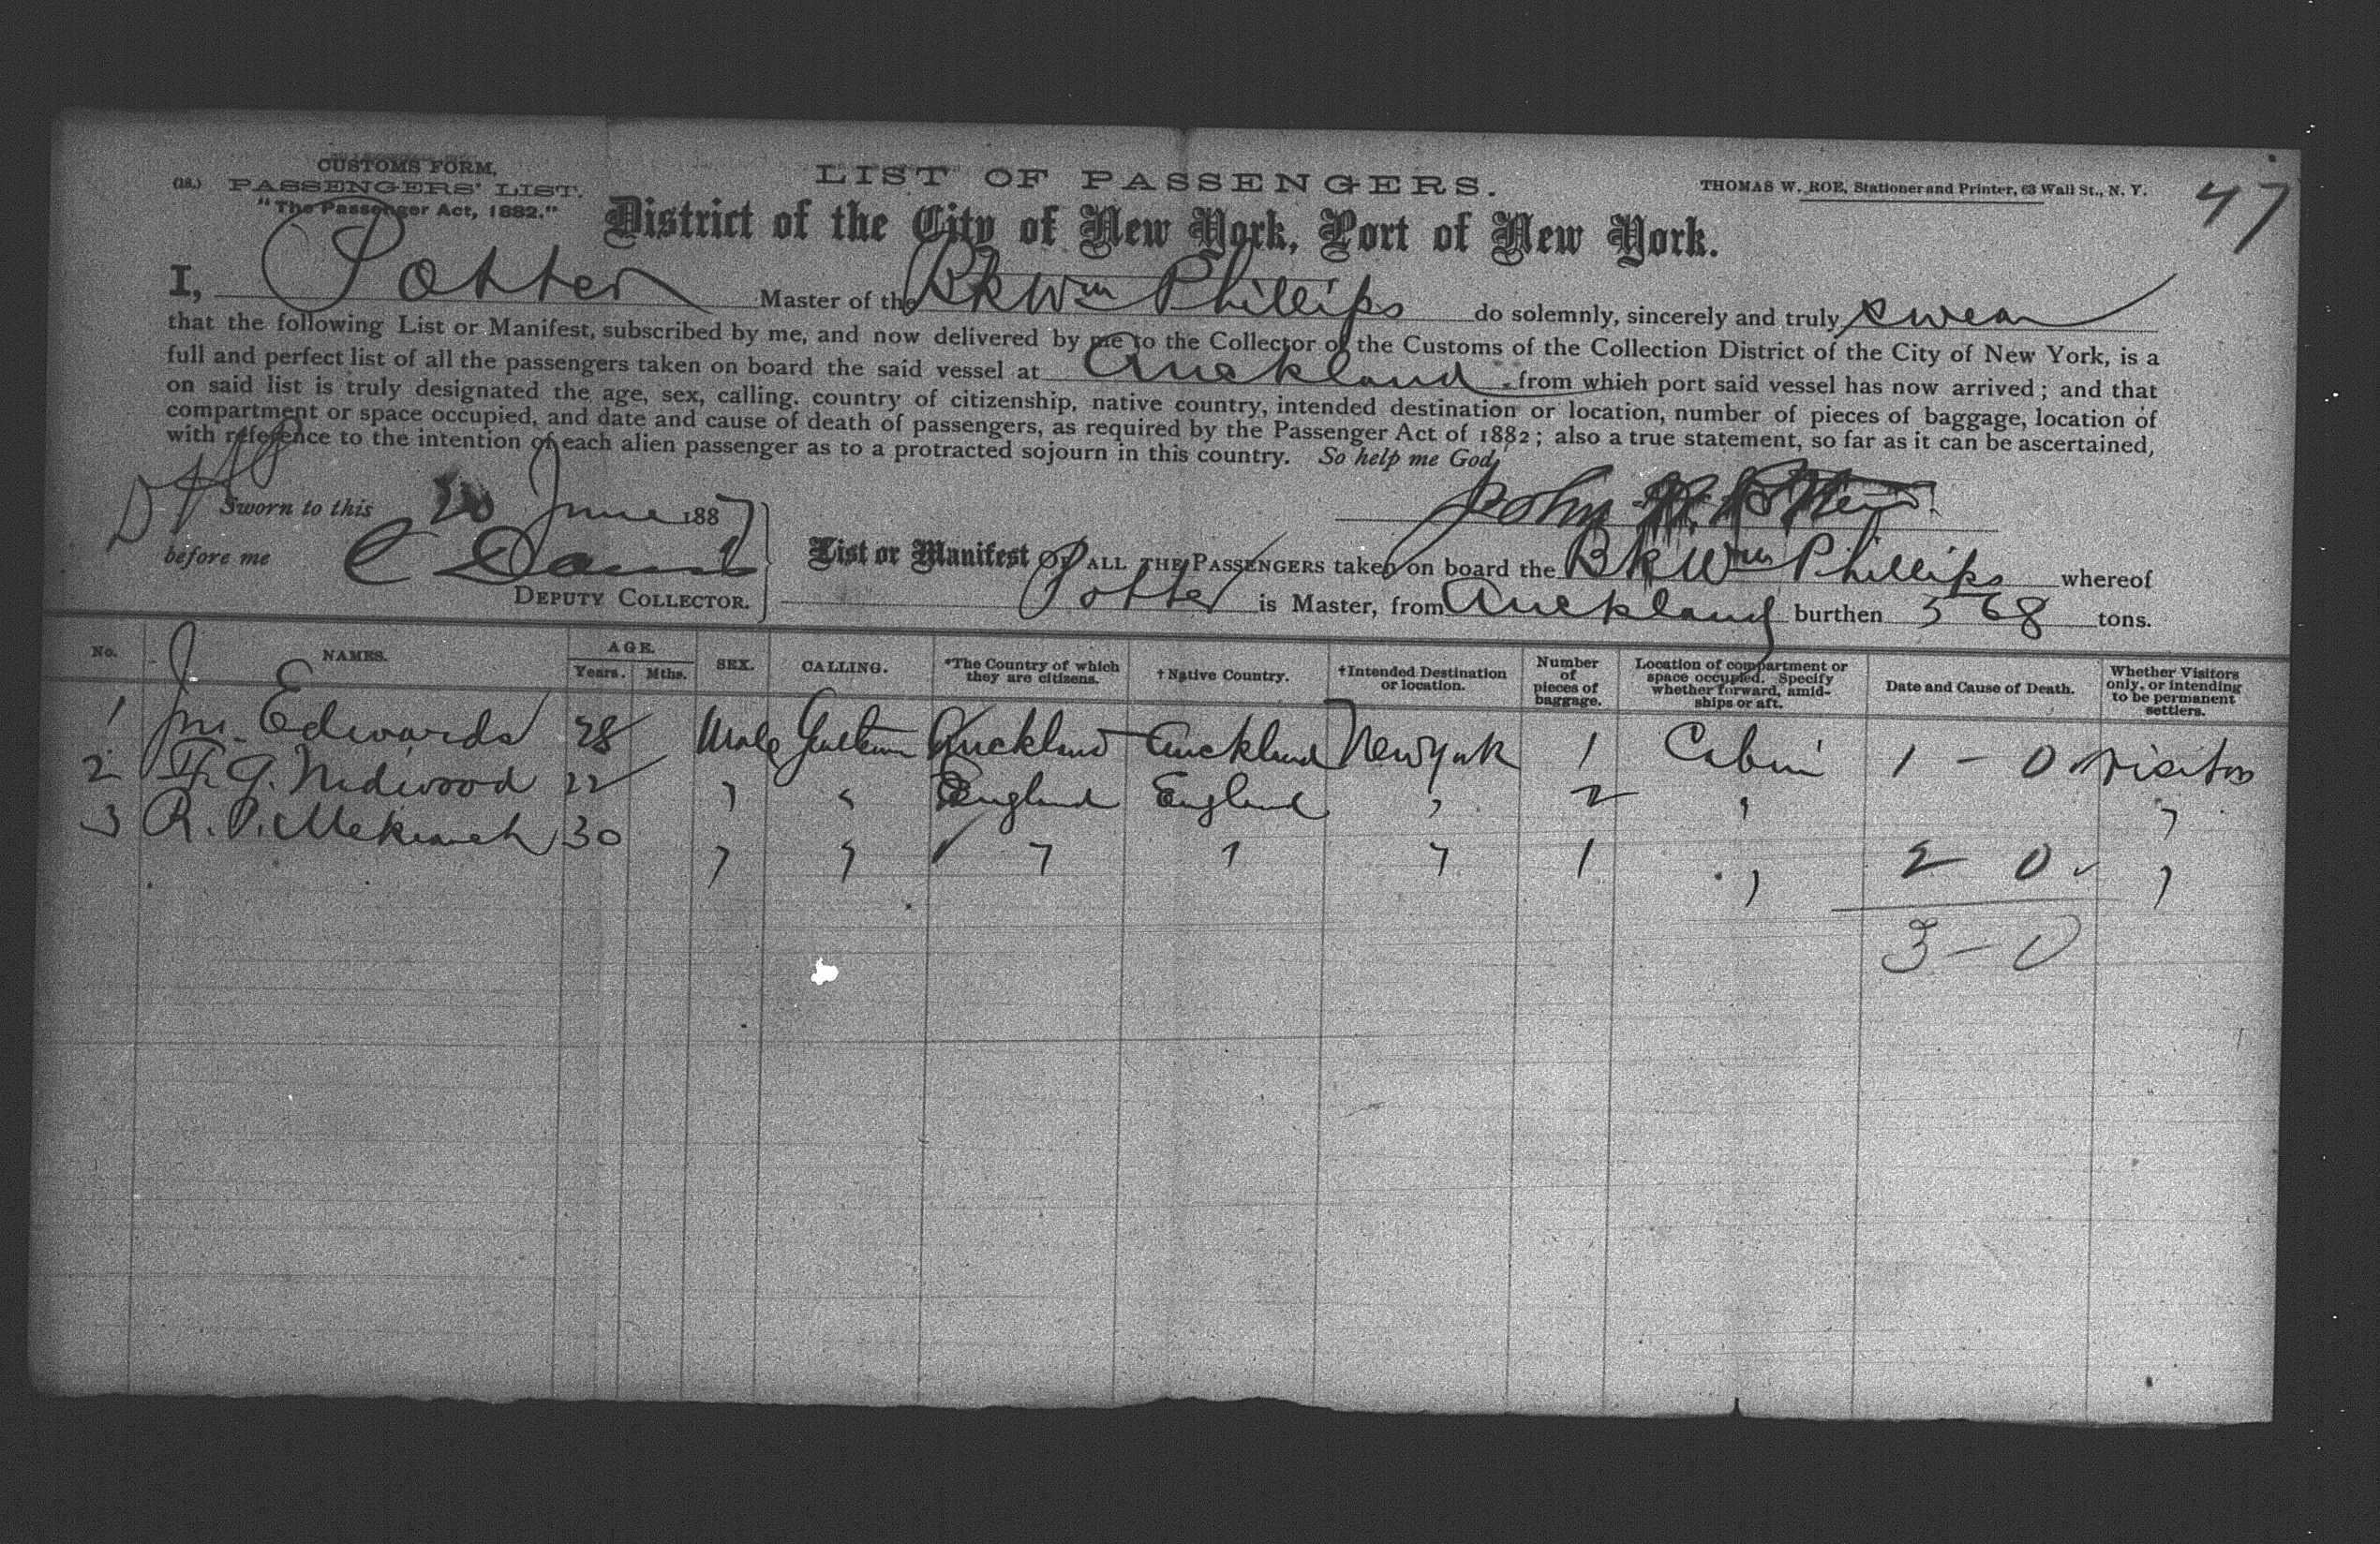 CUSTOMS FORM,
(18.) PASSENGERS' LIST.
"The Passenger Act, 1882."
LIST OF PASSENGERS.
THOMAS W. ROE, Stationer and Printer, 63 Wall St., N. Y.
47
District of the City of New York, Port of New York.
I, Potter Master of the Bk Wm Phillips do solemnly, sincerely and truly swear
that the following List or Manifest, subscribed by me, and now delivered by me to the Collector of the Customs of the Collection District of the City of New York, is a
full and perfect list of all the passengers taken on board the said vessel at Auckland from which port said vessel has now arrived; and that
on said list is truly designated the age, sex, calling, country of citizenship, native country, intended destination or location, number of pieces of baggage, location of
compartment or space occupied, and date and cause of death of passengers, as required by the Passenger Act of 1882; also a true statement, so far as it can be ascertained,
with reference to the intention of each alien passenger as to a protracted sojourn in this country. So help me God,
Sworn to this 20 June 1887
John Potter
before me C Davis
DEPUTY COLLECTOR.
List or Manifest OF ALL THE PASSENGERS taken on board the Bk Wm Phillips whereof
Potter is Master, from Auckland burthen 568 tons.
No. NAMES. AGE. Years. Mths. SEX. CALLING. *The Country of which they are citizens. †Native Country. †Intended Destination or location. Number of pieces of baggage. Location of compartment or space occupied. Specify whether forward, amidships or aft. Date and Cause of Death. Whether Visitors only, or intending to be permanent settlers.
1 Edwards 28 Male Auckland Auckland New York 1 Cabin 1 - 0 Visitors
2 22 " " England England " 2 " "
3 R. P. 30 " " " " " 1 " 2 0 "
3 - 0